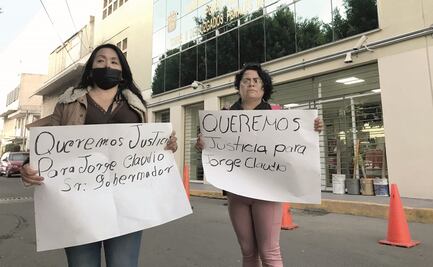 Queremos Justicia
Para Jorge Claudio
Sr. Gobernador
QUEREMOS
Justicia para
Jorge Claudio